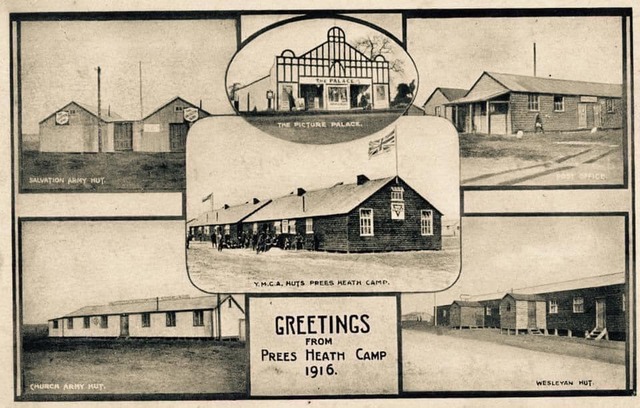 THE PALACE
THE PICTURE PALACE.
SALVATION ARMY HUT.
POST OFFICE.
Y.M.C.A. HUTS PREES HEATH CAMP.
CHURCH ARMY HUT.
GREETINGS
FROM
PREES HEATH CAMP
1916.
WESLEYAN HUT.